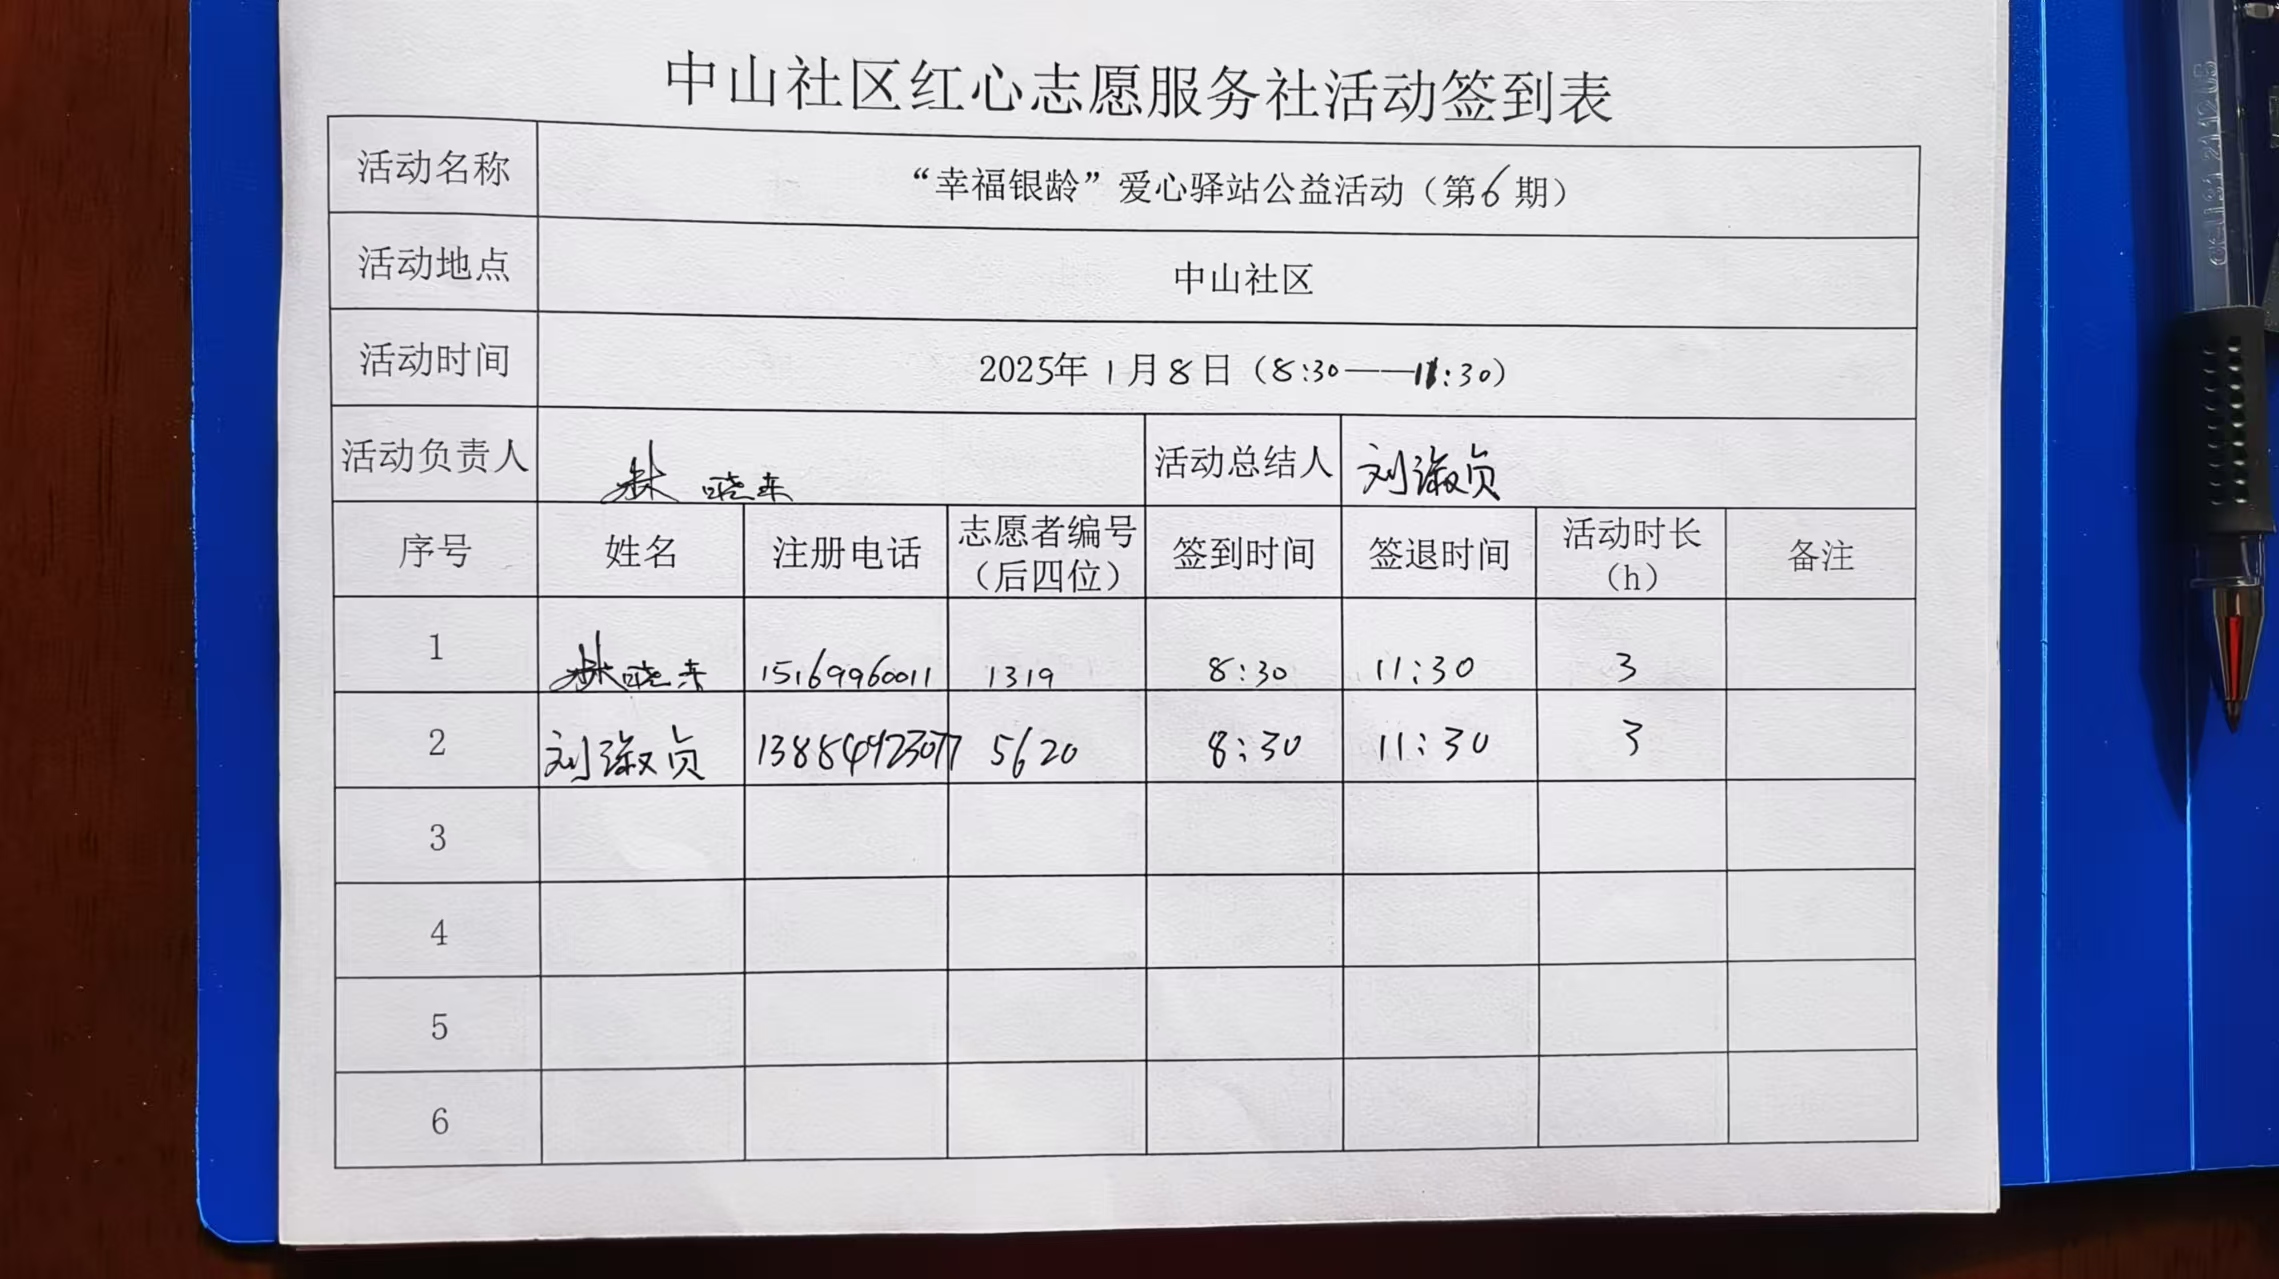 中山社区红心志愿服务社活动签到表
活动名称 “幸福银龄”爱心驿站公益活动（第6期）
活动地点 中山社区
活动时间 2025年1月8日（8:30——11:30）
活动负责人 林晓东 活动总结人 刘淑贞
序号 姓名 注册电话 志愿者编号（后四位） 签到时间 签退时间 活动时长（h） 备注
1 林晓东 15169960011 1319 8:30 11:30 3
2 刘淑贞 13884923077 5620 8:30 11:30 3
3
4
5
6